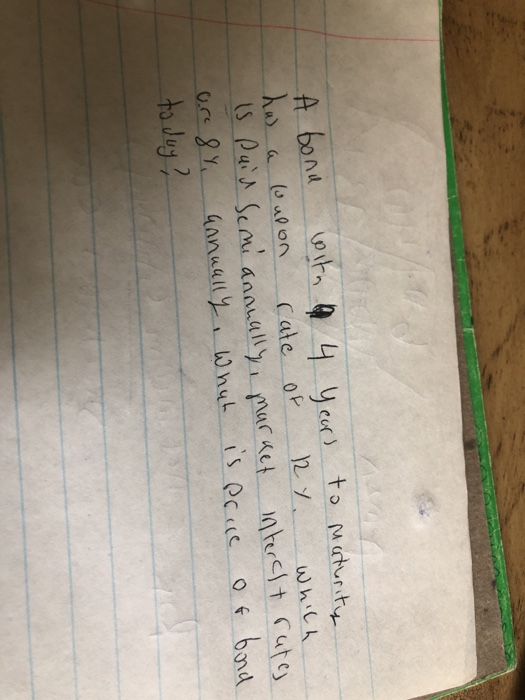 A bond with 4 years to maturity
has a coupon rate of 12%. which
is paid semi annually, market interest rates
are 8% annually, what is price of bond
today?